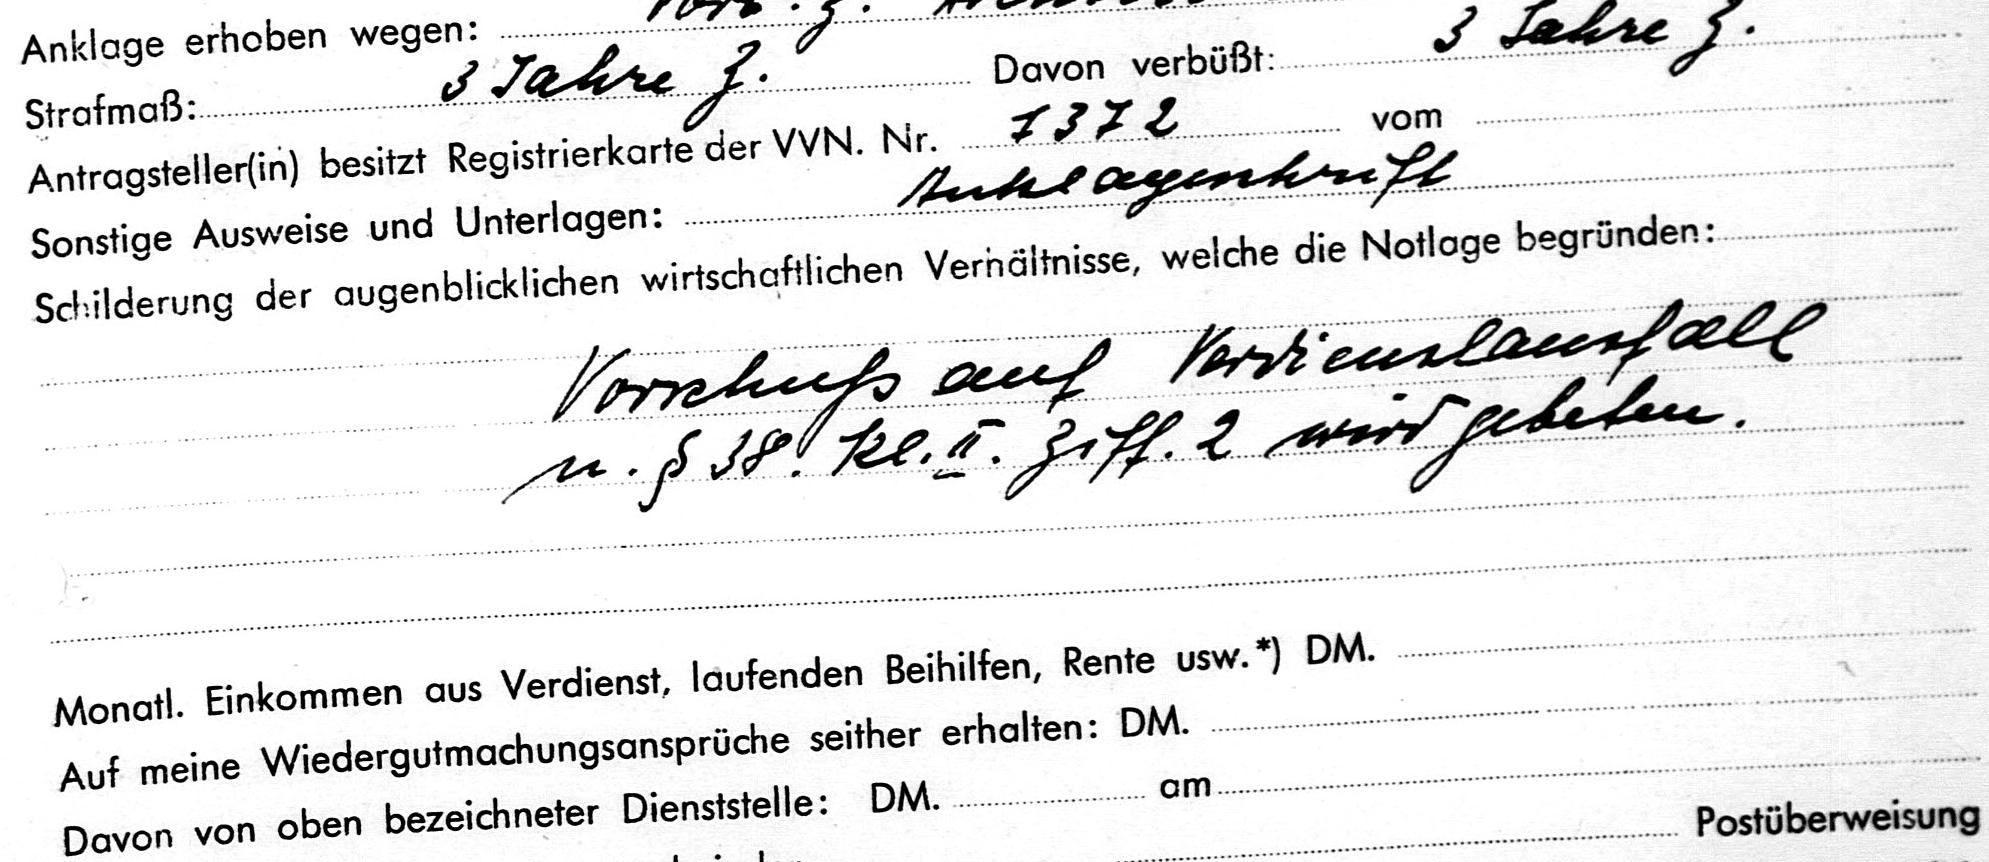 Anklage erhoben wegen: Vorb. z.
Strafmaß: 3 Jahre Z. Davon verbüßt: 3 Jahre Z.
Antragsteller(in) besitzt Registrierkarte der VVN. Nr. 1372 vom
Sonstige Ausweise und Unterlagen: Anklageschrift
Schilderung der augenblicklichen wirtschaftlichen Verhältnisse, welche die Notlage begründen:
Vorschuß auf Verdienstausfall
n. § 38. Kl. II. Ziff. 2 wird gebeten.
Monatl. Einkommen aus Verdienst, laufenden Beihilfen, Rente usw.*) DM.
Auf meine Wiedergutmachungsansprüche seither erhalten: DM.
Davon von oben bezeichneter Dienststelle: DM. am
Postüberweisung